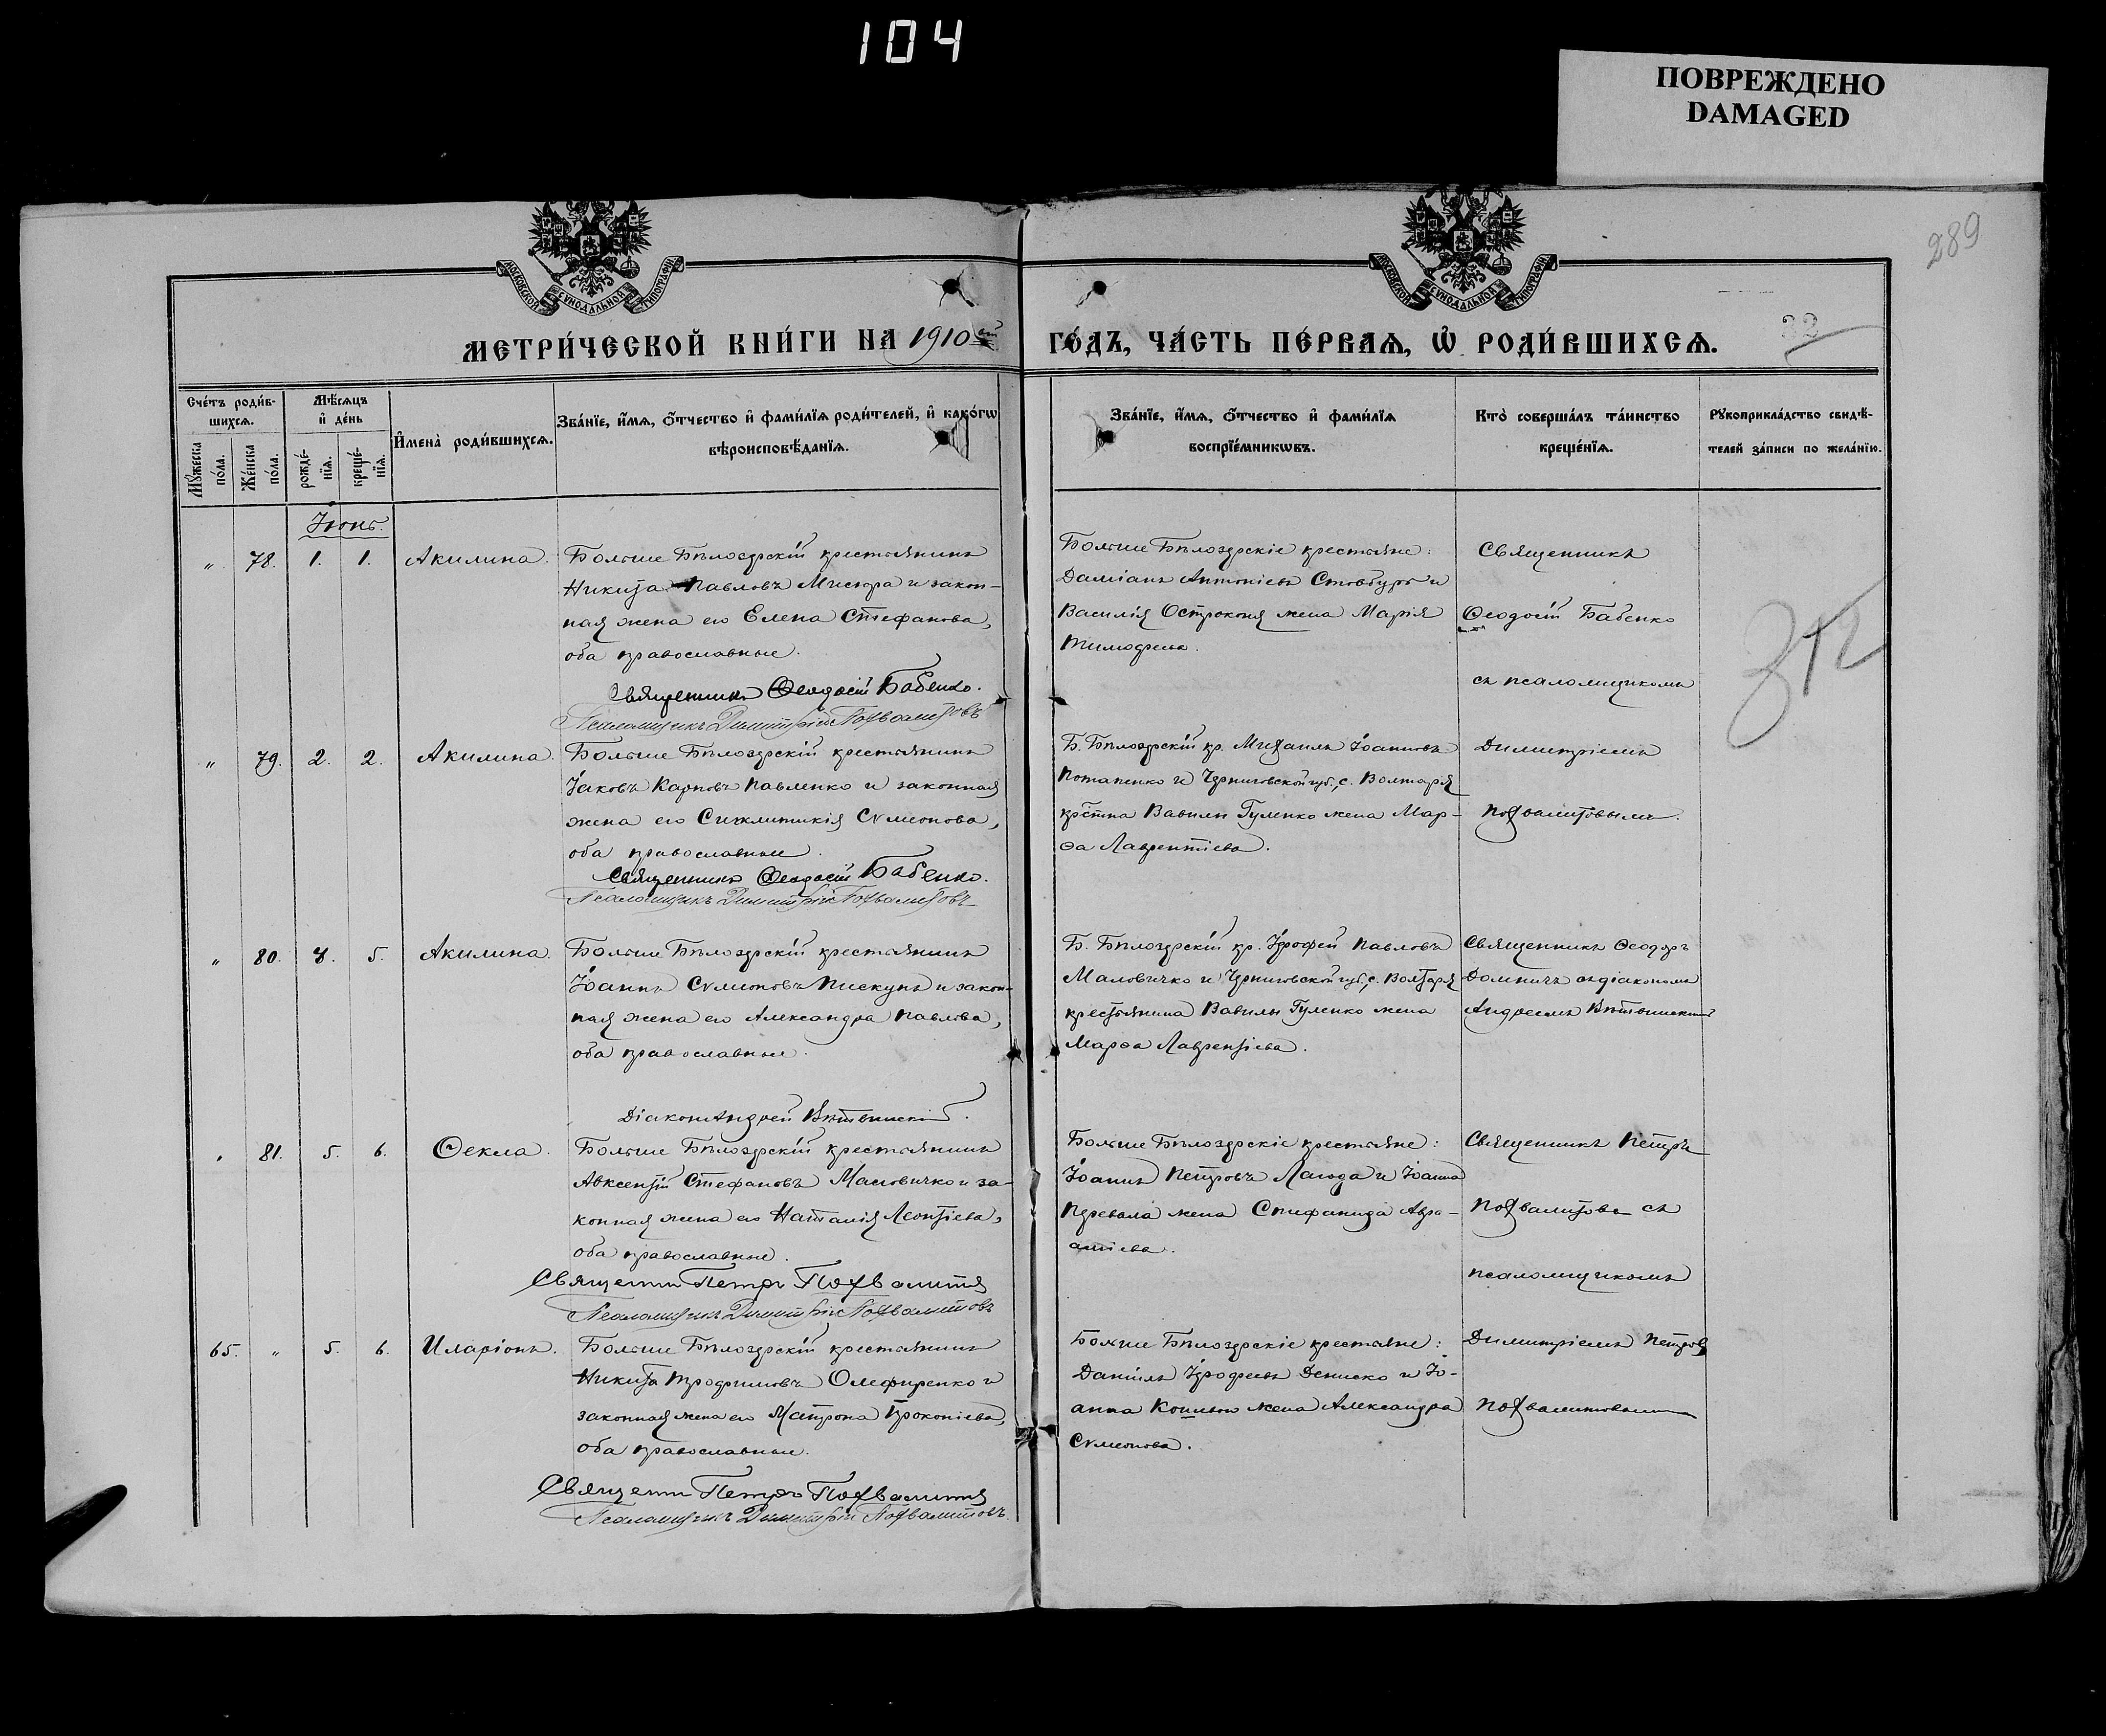 104
ПОВРЕЖДЕНО
DAMAGED
289
МОСКОВСКОЙ СѴНОДАЛЬНОЙ ТИПОГРАФІИ
МОСКОВСКОЙ СѴНОДАЛЬНОЙ ТИПОГРАФІИ
МЕТРИ́ЧЕСКОЙ КНИ́ГИ НА 1910 ый ГО́ДЪ, ЧА́СТЬ ПЕ́РВАѦ, Ѡ҆ РОДИ́ВШИХСѦ.
32
Сче́тъ роди́в-
шихсѧ.
Мꙋ́жеска по́ла.
Же́нска по́ла.
Мѣ́сѧцъ
и҆ де́нь
рожде́-нїѧ.
креще́-нїѧ.
И҆мена̀ роди́вшихсѧ.
Зва́нїе, и҆́мѧ, ѻ҆́тчество и҆ фами́лїѧ роди́телей, и҆ како́гѡ
вѣроисповѣ́данїѧ.
Зва́нїе, и҆́мѧ, ѻ҆́тчество и҆ фами́лїѧ
воспрїе́мникѡвъ.
Кто̀ соверша́лъ та́инство
креще́нїѧ.
Рꙋкоприкла́дство свидѣ́-
телей за́писи по жела́нїю.
Іюнь.
" 78. 1. 1. Акилина.
Больше Бѣлозерскій крестьянинъ
Никита Павловъ Мисюра и закон-
ная жена его Елена Стефанова,
оба православные.
Священникъ Ѳеодосій Бабенко.
Псаломщикъ Димитрій Похвалитовъ
Больше Бѣлозерскіе крестьяне:
Даміанъ Антоніевъ Стовбуръ и
Василія Остроконя жена Марія
Тимофеева.
Священникъ
Ѳеодосій Бабенко
съ псаломщикомъ
312
" 79. 2. 2. Акилина.
Больше Бѣлозерскій крестьянинъ
Іаковъ Карповъ Павленко и законная
жена его Синклитикія Сѵмеонова,
оба православные.
Священникъ Ѳеодосій Бабенко.
Псаломщикъ Димитрій Похвалитовъ
Б. Бѣлозерскій кр. Михаилъ Іоанновъ
Потапенко и Черниговской губ., с. Волтаря
кр-стина Вавилы Гуленко жена Мар-
ѳа Лаврентіева.
Димитріемъ
Похвалитовымъ.
" 80. 4. 5. Акилина.
Больше Бѣлозерскій крестьянинъ
Іоаннъ Сѵмеоновъ Пискунъ и закон-
ная жена его Александра Павлова,
оба православные.
Діаконъ Андрей Вѣтвинскій.
Б. Бѣлозерскій кр. Іерофей Павловъ
Маловичко и Черниговской губ., с. Волтаря
крестьянина Вавилы Гуленко жена
Марѳа Лаврентіева.
Священникъ Ѳеодоръ
Домничъ съ діакономъ
Андреемъ Вѣтвинскимъ
" 81. 5. 6. Ѳекла.
Больше Бѣлозерскій крестьянинъ
Авксентій Стефановъ Маловичко и за-
конная жена его Наталія Леонтіева,
оба православные.
Священн Петръ Похвалитъ
Псаломщикъ Димитрій Похвалитовъ
Больше Бѣлозерскіе крестьяне:
Іоаннъ Петровъ Лагода и Іоанна
Перевала жена Епифанида Авра-
аміева.
Священникъ Петръ
Похвалитовъ съ
псаломщикомъ
65. " 5. 6. Иларіонъ.
Больше Бѣлозерскій крестьянинъ
Никита Трофимовъ Олефиренко и
законная жена его Матрона Прокопіева,
оба православные.
Священн Петръ Похвалитъ
Псаломщикъ Димитрій Похвалитовъ.
Больше Бѣлозерскіе крестьяне:
Даніилъ Іерофеевъ Дениско и Іо-
анна жена Александра
Сѵмеонова.
Димитріемъ Петров
Похвалитовымъ